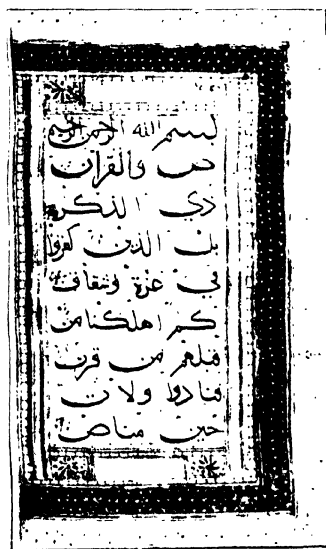 بسم الله الرحمن الرحيم
ص والقران
ذي الذكر
بل الذين كفروا
في عزة وشقاق
كم اهلكنا من
قبلهم من قرن
فنادوا ولات
حين مناص